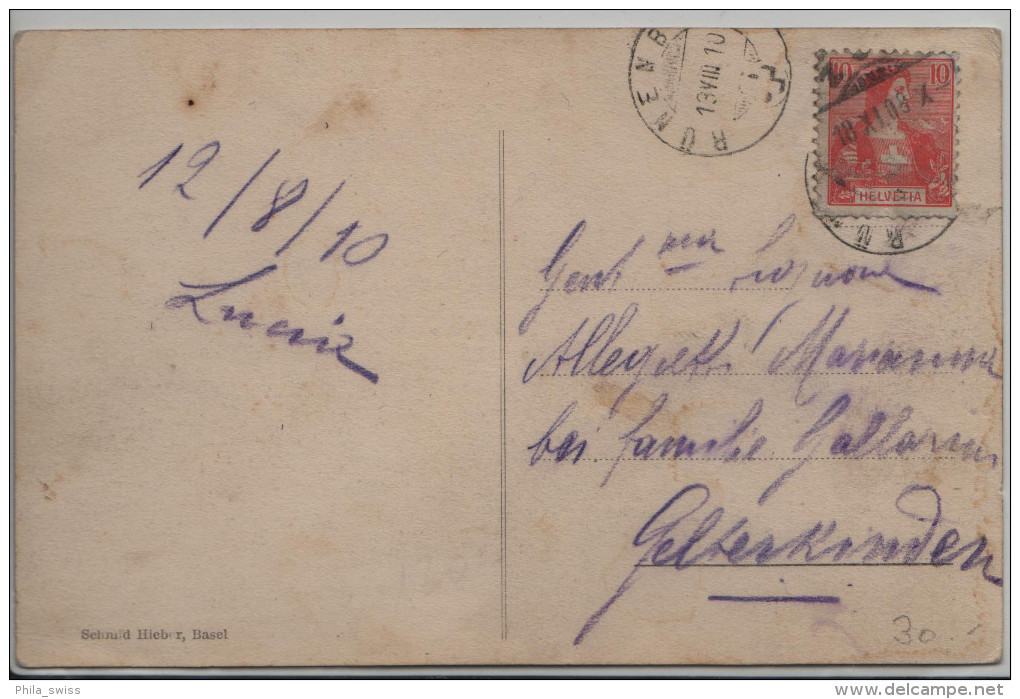 RÜNENB
13 VIII 10
10 10
HELVETIA
RÜ
12/8/10
Lucia
Gent ma Signora
Allegetti Marianna
bei familie Gallarin
Gelterkinden
30.-
Schmid Hieber, Basel
Phila_swiss
delcampe.net